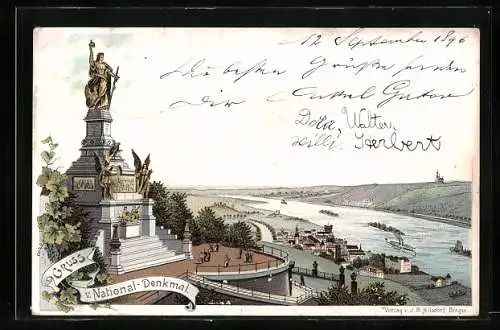 12 September 1896
Die besten Grüße senden
dir Onkel Gustav
Dola, Walter,
Willi, Herbert
Gruss
v. National-Denkmal.
Verlag v. J. B. Hilsdorf Bingen